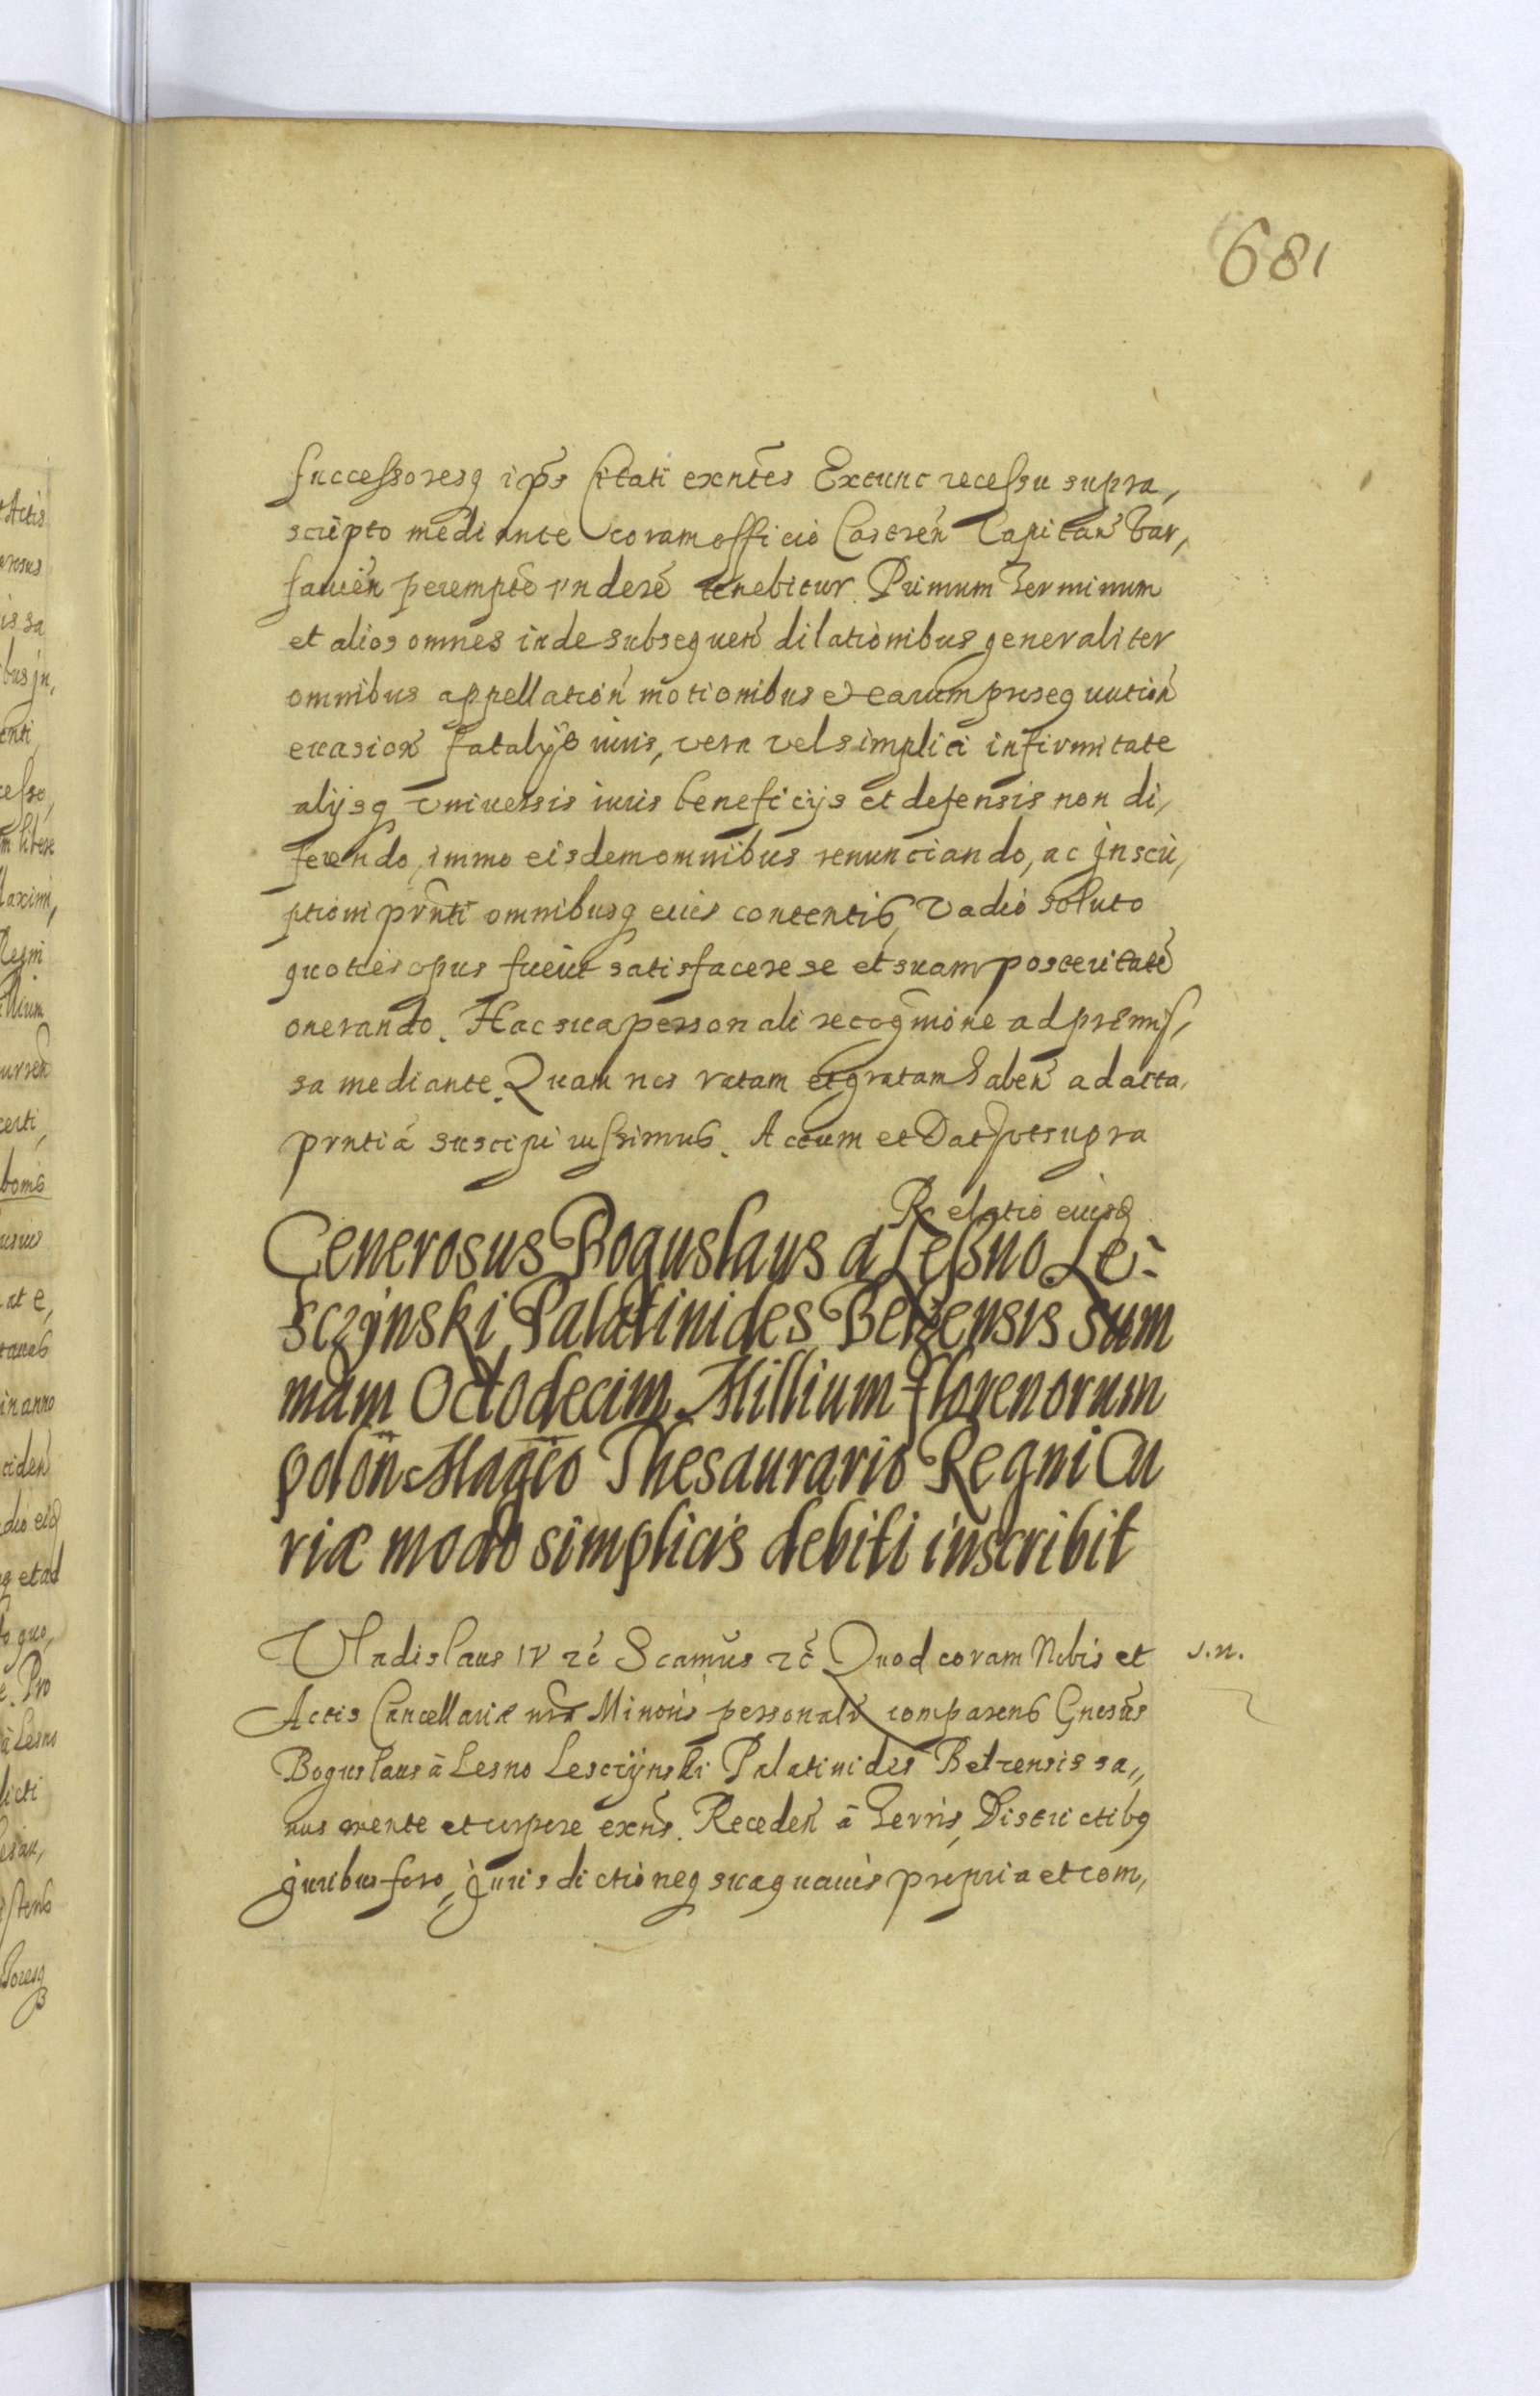 681
successoresq ips Citati exntes Extunc recessu supra,
scripto mediante coram officio Castren Capitan Var,
savien perempte rndere tenebitur. Primum Terminum
et alios omnes inde subsequen dilationibus generaliter
omnibus appellation motionibus et earum prosequution
evasion fatalijs iuris, vera vel simplici infirmitate
alijsq Universis iuris beneficijs et defensis non di,
ferendo, immo eisdem omnibus renunciando, ac Inscri,
ptioni prnti omnibusq eius contentis, Vadio soluto
quoties opus fuerit satisfacere se et suam posteritate
onerando. Hac sua personali recognione ad premis,
sa mediante. Quam nos ratam et gratam haben ad acta
prntia suscipi iussimus. Actum et Dat ut supra
Relatio eiusd
Generosus Boguslaus a Leßno Le-
sczynski Palatinides Belzensis Sum
mam Octodecim Millium florenorum
polon Magco Thesaurario Regni Cu
riæ modo simplicis debiti inscribit
Vladislaus IV rc Scamus rc Quod coram Nobis et
s.n.
Actis Cancellariæ nra Minoris personalr comparens Gnosus
Boguslaus à Lesno Lesczynski Palatinides Belzensis sa,,
nus mente et corpore exns. Receden à Terris, Districtibq
Iuribus foro, Iurisdictioneq sua quavis propria et com,